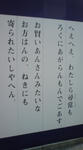 へえへえ、わたしら尋常も
ろくにあがらんもんでごあす
お賢いあんさんみたいな
お方はんの、ねきにも
寄られたいしやへん